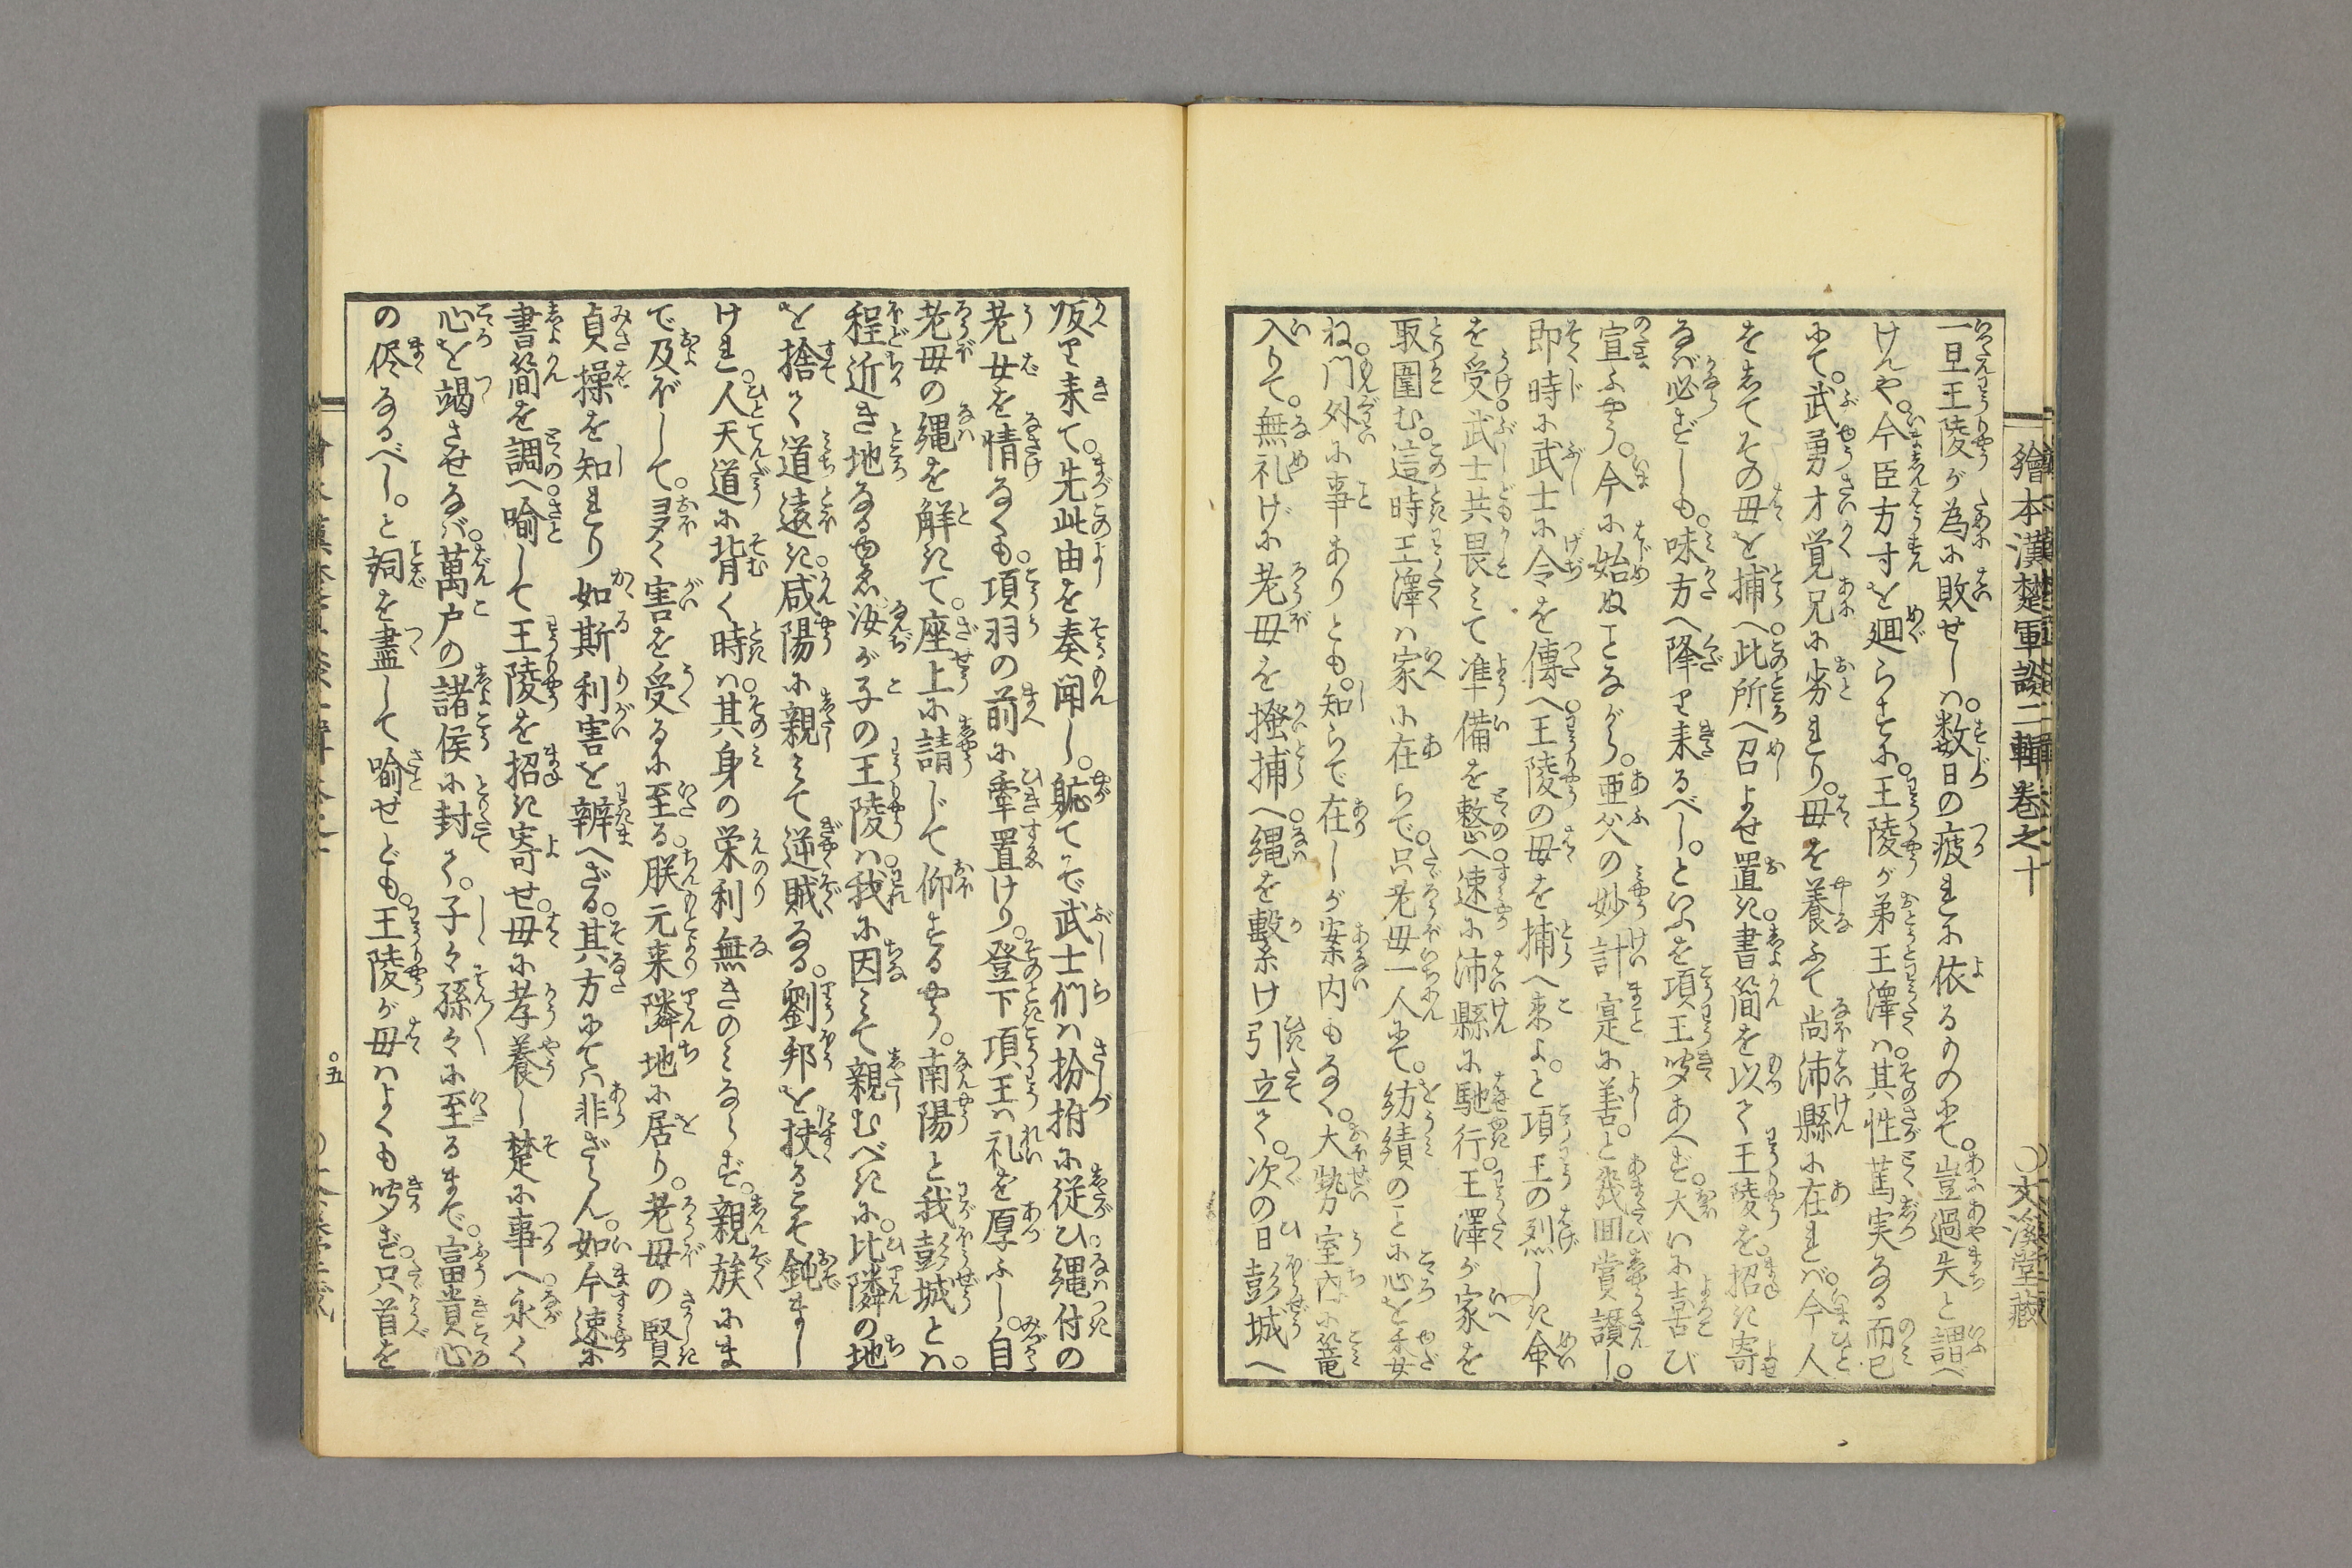 繪本漢楚軍談二輯巻之十　〇文溪堂蔵
一旦王陵が為に敗せしハ。数日の疲れに依るものにて。豈過失と謂べ
けんや。今臣方寸を廻らすに。王陵が弟王澤ハ。其性篤実なる而已
にて。武勇才覚兄に劣れり。母を養ふて尚沛縣に在れバ。今人
をしてその母を捕へ。此所へ召よせ置き。書簡を以て王陵を。招き寄
るバ必ずしも。味方へ降り来るべし。といふを項王聞あへず。大いに喜び
宣ふやう。今に始ぬことながら。亜父の妙計寔に善。と幾回賞讃し。
即時に武士に令を傳へ。王陵の母を捕へ来よ。と項王の烈しき命
を受。武士共畏ミて準備を整へ。速に沛縣に馳行。王澤が家を
取圍む。這時王澤ハ家に在らで。只老母一人にて。紡績のことに心を委
ね。門外に事ありとも。知らで在しが案内もなく。大勢室内に篭
入りて。無礼げに老母を搔捕へ。縄を繫け引立て。次の日彭城へ
皈り来て。先此由を奏聞し。軈てぞ武士們ハ扮拊に従ひ。縄付の
老女を情なくも。項羽の前に牽置けり。登下項王ハ礼を厚ふし。自
老母の縄を解きて。座上に請じて仰するやう。南陽と我彭城とハ。
程近き地なるゆゑ。汝が子の王陵ハ。我に因ミて親むべきに。比隣の地
を捨て道遠き。咸陽に親ミて逆賊なる。劉邦を扶るこそ鈍まし
けれ。人天道に背く時ハ。其身の栄利無きのミならず。親族にま
で及ぼして。夛く害を受るに至る。朕元来隣地に居り。老母の賢
貞操を知れり如斯利害を辨へざる。其方にてハ非ざらん。如今速に
書簡を調へ。喻して王陵を招き寄せ。母に孝養し楚に事へ。永く
心を竭させなバ。萬戸の諸侯に封て。子々孫々に至るまで。富貴心
の侭なるべし。と詞を盡して喻せども。王陵が母ハよくも聞ず。只首を
〇五